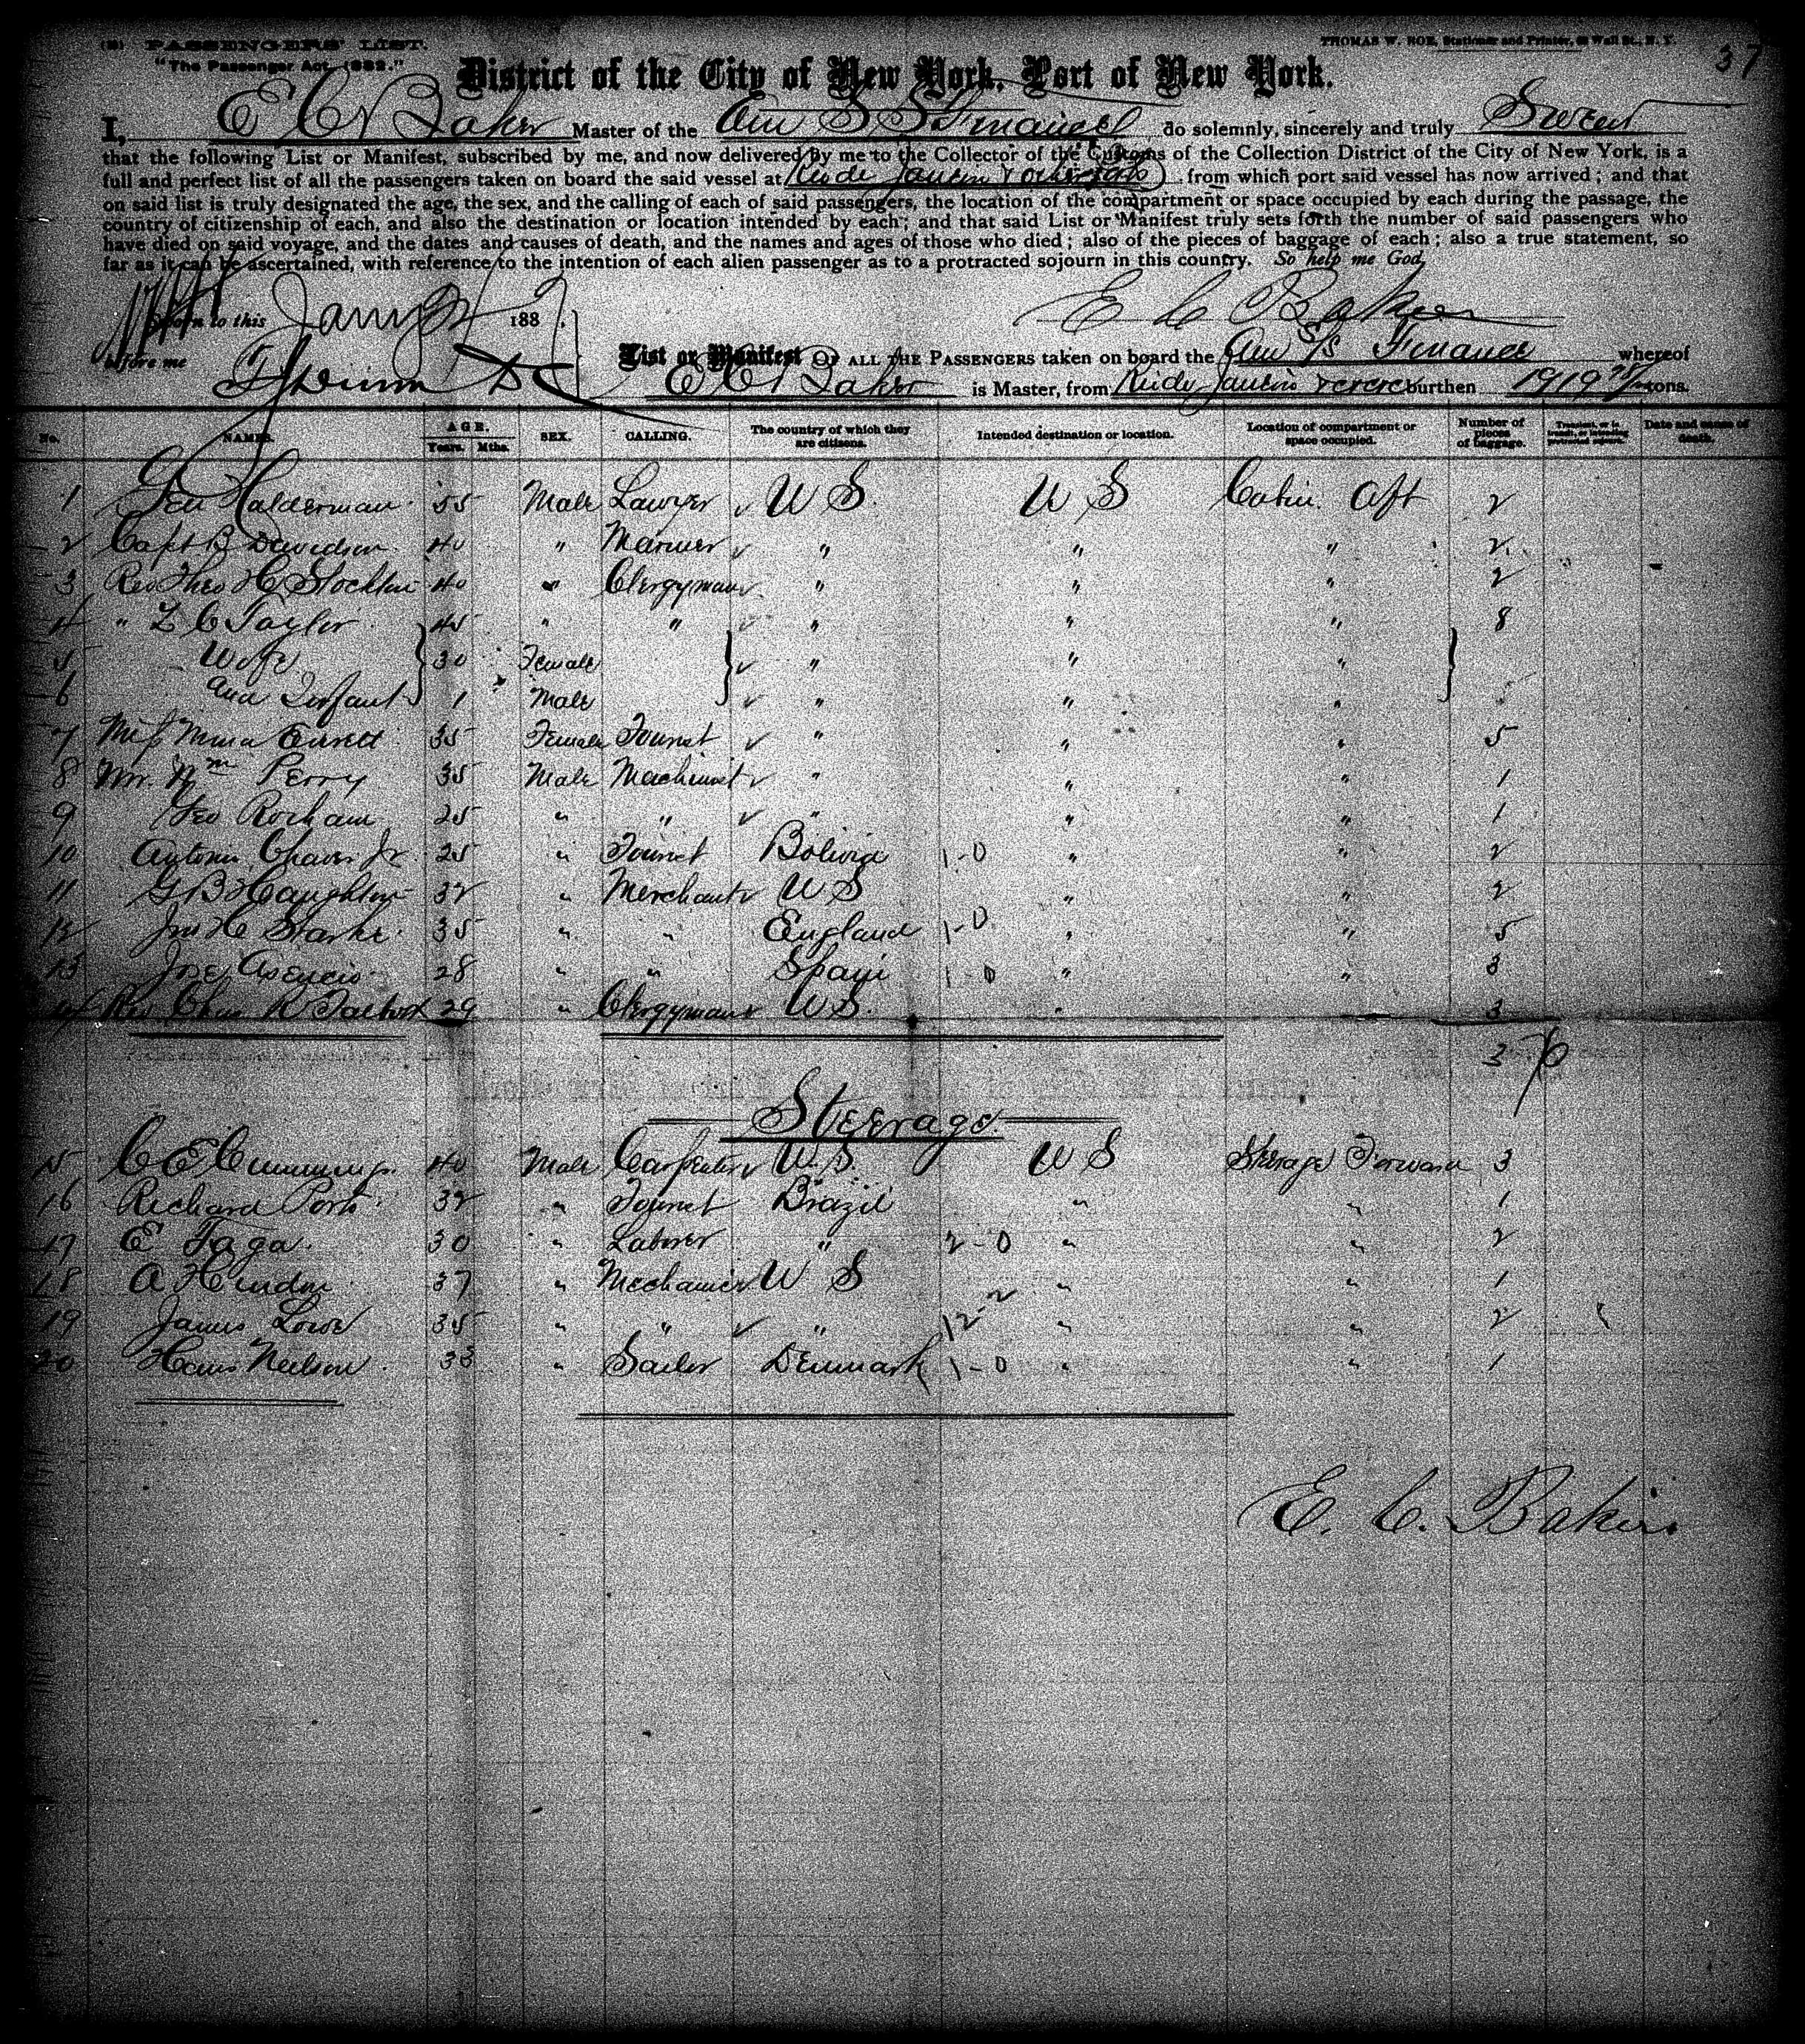 (2) PASSENGERS' LIST.
"The Passenger Act, 1882."
THOMAS W. ROE, Stationer and Printer, Wall St., N. Y.
37
District of the City of New York, Port of New York.
I, E C Baker Master of the Am S S Finance do solemnly, sincerely and truly Swear
that the following List or Manifest, subscribed by me, and now delivered by me to the Collector of the Customs of the Collection District of the City of New York, is a
full and perfect list of all the passengers taken on board the said vessel at from which port said vessel has now arrived; and that
on said list is truly designated the age, the sex, and the calling of each of said passengers, the location of the compartment or space occupied by each during the passage, the
country of citizenship of each, and also the destination or location intended by each; and that said List or Manifest truly sets forth the number of said passengers who
have died on said voyage, and the dates and causes of death, and the names and ages of those who died; also of the pieces of baggage of each; also a true statement, so
far as it can be ascertained, with reference to the intention of each alien passenger as to a protracted sojourn in this country. So help me God.
E C Baker
Sworn to this 188
before me
List or Manifest OF ALL THE PASSENGERS taken on board the Am S/S Finance whereof
E C Baker is Master, from burthen 1919 tons.
No. NAMES. AGE. Years. Mths. SEX. CALLING. The country of which they are citizens. Intended destination or location. Location of compartment or space occupied. Number of pieces of baggage. Transient, or in transit, or intending protracted sojourn. Date and cause of death.
1 Gen Halderman 55 Male Lawyer U S. U S Cabin Aft 2
2 Capt B Davidson 40 " Mariner " " " 2
3 Rev Theo H Stockton 40 " Clergyman " " " 2
4 " Z C Taylor 45 " " " " " 8
5 Wife 30 Female " " "
6 and Infant 1 Male " " "
7 Miss Mina Everett 35 Female Tourist " " " 5
8 Mr. Wm Perry 35 Male Machinist " " " 1
9 Geo Rorham 25 " " " " " 1
10 Antonio Chaves Jr 25 " Tourist Bolivia 1-0 " " 2
11 G B Haughton 32 " Merchant U S " " 2
12 Jno H Starke 35 " " England 1-0 " " 5
13 Jose Asencio 28 " " Spain 1-0 " " 3
14 Rev Chas R Talbot 29 " Clergyman U S. " 3
Steerage
15 C E Cummings 40 Male Carpenter U.S. U S Steerage Forward 3
16 Richard Ports 32 " Tourist Brazil " " 1
17 E Taga 30 " Laborer " 2-0 " " 2
18 A Hindon 37 " Mechanic U S " " 1
19 James Lowe 35 " " " 12-2 " " 2
20 Hans Neilson 33 " Sailor Denmark 1-0 " " 1
E. C. Baker